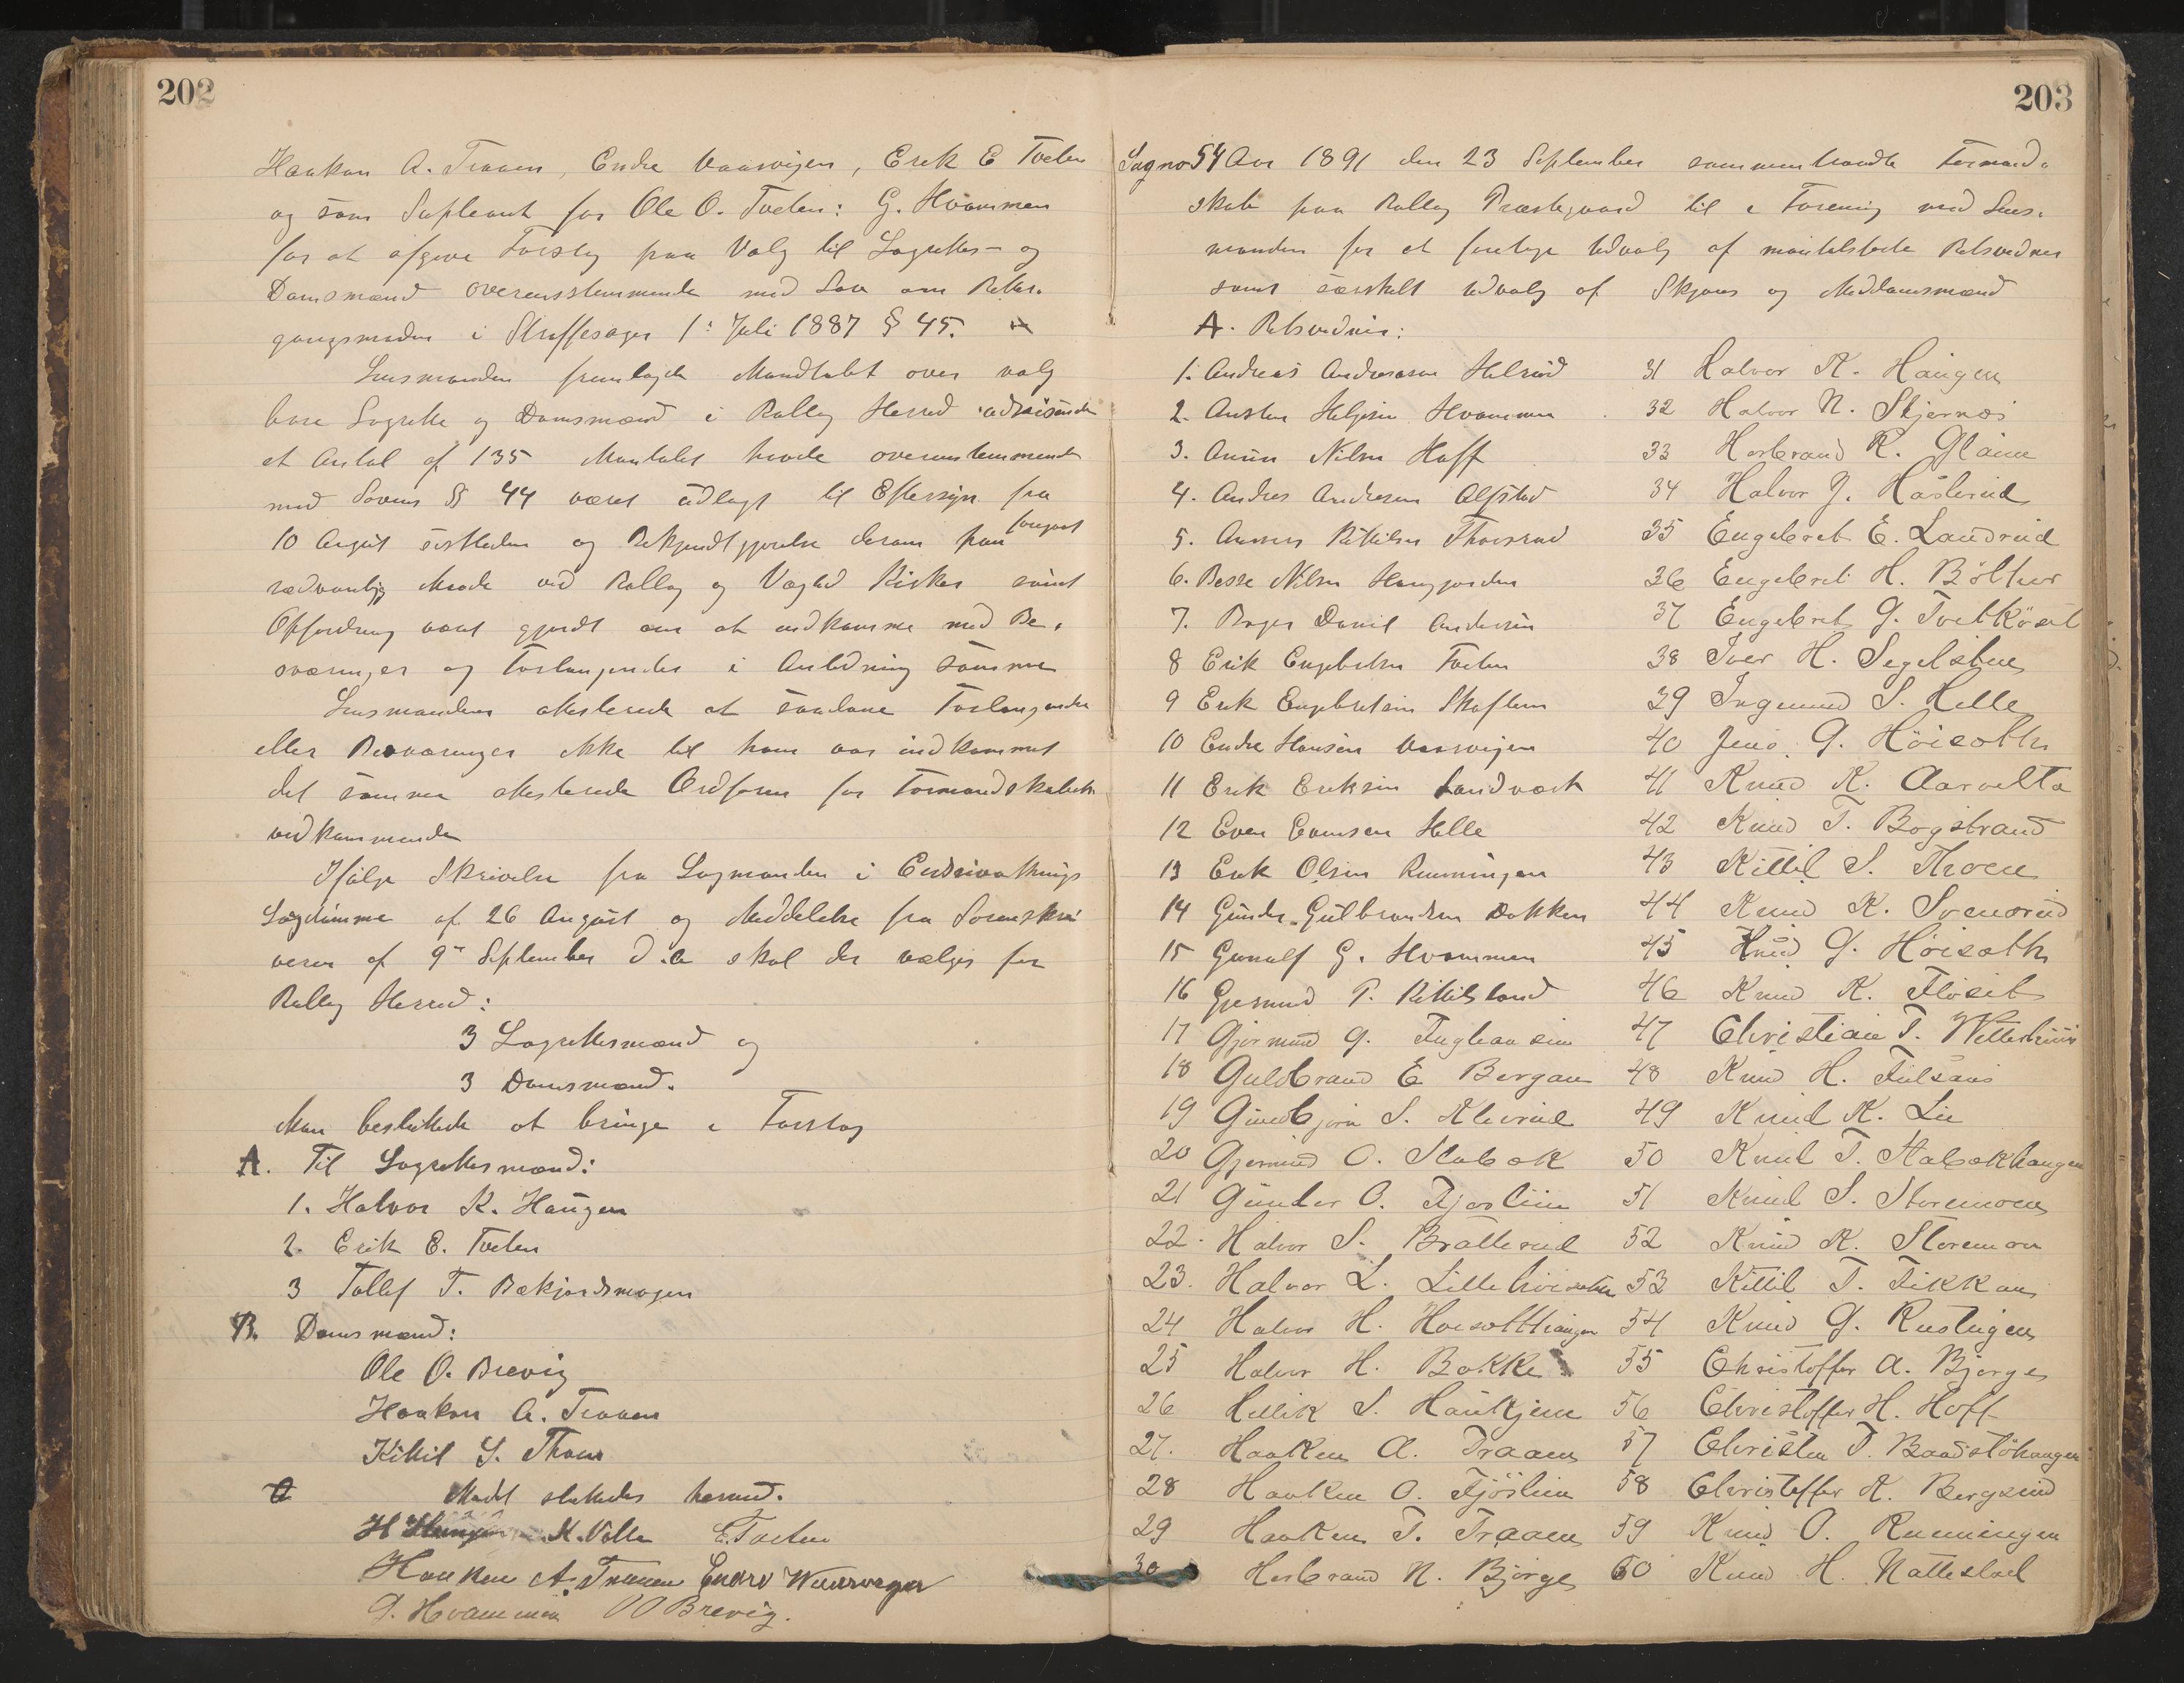 202
Haakon A. Traaen, Endre Vaarvigen, Erik E Tveten
og som Supleant for Ole O. Tveten: G. Hvammen
for at afgive Forslag paa Valg til Lagrettes- og
Domsmænd overensstemmende med Lov om Retter-
gangsmaaden i Straffesager 1ᵗ Juli 1887 § 45.
Lensmanden fremlagde Mandtallet over valg
bare Lagrette og Domsmænd i Rollag Herred udvisende
et Antal af 135 Mantallet havde overensstemmende
med Lovens § 44 været udlagt til Eftersyn fra
10 August sistleden og Bekjendtgjørelse derom paa foregaaet
sædvanlig Maade ved Rollag og Veglid Kirker samt
Opfordring været gjordt om at indkomme med Be-
sværinger og Forlangender i Anledning samme
Lensmanden attesterede at saadane Forlangender
eller Besværinger ikke til ham var indkommet
det samme attesterede Ordføren for Formandskabets
vedkommende
Ifølge Skrivelse fra Lagmanden i Eidsivathings
Lagdømme af 26 August og Meddelelse fra Sorenskri
veren af 9ᵈᵉ September d.a skal der vælges for
Rollag Herred:
3 Lagrettesmænd og
3 Domsmænd.
Man besluttede at bringe i Forslag
A. Til Lagrettesmænd:
1. Halvor K. Haugen
2. Erik E. Tveten
3 Tollef T. Bekjordsmogen
B. Domsmænd:
Ole O. Brevig
Haakon A. Traaen
Kittil S. Thoen
Mødet sluttedes hermed.
H Haugen K. Volle E. Tveten
Haaken A. Traaen Endre Waarvigen
G. Hvammen O O Brevig.
203
Sag no 54 Aar 1891 den 23 September sammentraadte Formand-
skabet paa Rollag Præstegaard til i Forening med Lens-
manden for at foretage Udvalg af mantalsførte Retsvidner
samt særskilt Udvalg af Skjøns og Meddomsmænd
A. Retsvidner:
1. Andreas Andreasen Helrud
2. Austen Helgesen Hvammen
3. Anun Nilsen Hoff
4. Andres Andresen Alfstad
5. Anders Kittilsen Thorsrud
6. Besse Nilsen Haugjorden
7. Birger Daniel Andersen
8 Erik Engebretsen Tveten
9 Erik Engebretsen Skaftem
10 Endre Hansen Vaarvigen
11 Erik Eriksen Landværk
12 Even Evensen Helle
13 Erik Olsen Runningen
14 Gunder Gulbrandsen Dokken
15 Gunulf G. Hvammen
16 Gjermund P. Kittilsland
17 Gjermund G. Fuglaasen
18 Guldbrand E Bergan
19 Gundbjørn S. Kleivrud
20 Gjermund O. Stabæk
21 Gunder O. Fjøslien
22. Halvor S. Bratterud
23. Halvor L. Lillehvisæter
24 Halvor H. Høisætthaugen
25 Halvor H. Bakke
26 Hellik S. Haukjem
27. Haaken A. Traaen
28 Haaken O. Fjöslien
29 Haaken T. Traaen
30 Herbrand N. Bjørge
31 Halvor K. Haugen
32 Halvor N. Skjernæs
33 Herbrand K. Glaim
34 Halvor J. Haslerud
35 Engebret E. Landrud
36 Engebret H. Böltner
37 Engebret G. Tvetköset
38 Iver H. Segelstuen
39 Ingemund S. Helle
40 Jens G. Höiseth
41 Knud K. Aarvelta
42 Knud T. Bogstrand
43 Kittil S. Thoen
44 Knud K. Svensrud
45 Knud G. Höiseth
46 Knud K. Flöset
47 Christian T. Wetterhuus
48 Knud H. Fulsaas
49 Knud K. Lie
50 Knud T. Stabækhaugen
51 Knud S. Storemoen
52 Knud K. Storemoen
53 Kittil T. Fikkan
54 Knud G. Rusteigen
55 Christoffer A. Bjørge
56 Christoffer H. Hoff
57 Christen T. Baadstöhaugen
58 Christoffer K. Bergsrud
59 Knud O. Runningen
60 Knud H. Nattestad